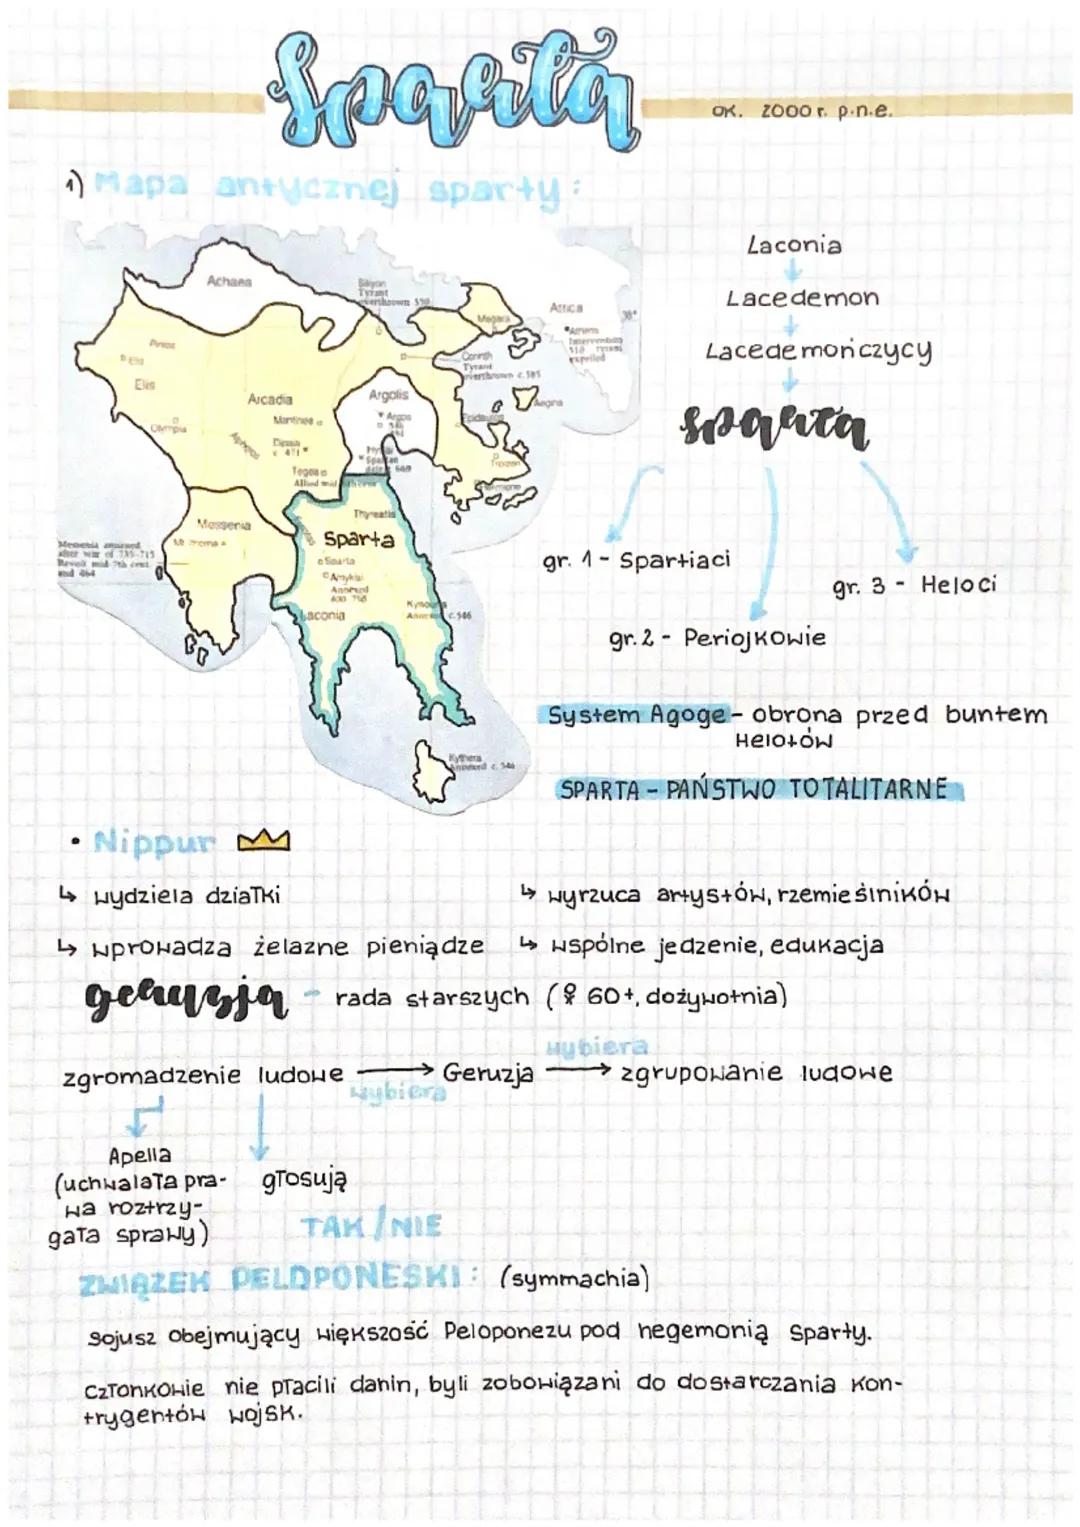 Sparta
OK. 2000 r. p.n.e.
1) Mapa antycznej sparty:
Achaea
Sikyon
Tyrant
overthrown 550
Megara
Attica
38°
Athens
Intervention
510 Tyrants
expelled
Corinth
Tyrant
overthrown c. 585
Aegina
Pinios
Elis
Elis
Olympia
Arcadia
Mantinea
Alpheios
c 471
Tegea
Allied mid 6th cent
Argolis
Argos
546
494
Spartan
defeat 669
Epidauros
Troizen
Hermione
Messenia
Mt Ithome
Messenia annexed
after war of 735-715
Revolt mid 7th cent.
and 464
Thyreatis
Sparta
Sparta
Amyklai
Annexed
Laconia
Annexed c. 546
Kythera
Annexed c. 546
Laconia
Lacedemon
Lacedemończycy
sparta
gr. 1 - Spartiaci
gr. 3 - Heloci
gr. 2 - Periojkowie
System Agoge - obrona przed buntem
Helotów
SPARTA - PAŃSTWO TOTALITARNE
• Nippur
↳ wydziela działki
↳ wyrzuca artystów, rzemieślników
↳ wprowadza żelazne pieniądze
↳ wspólne jedzenie, edukacja
geruzja - rada starszych (♀ 60+, dożywotnia)
zgromadzenie ludowe → wybiera Geruzja → wybiera zgrupowanie ludowe
Apella
(uchwalała pra-
wa roztrzy-
gała sprawy)
głosują
TAK/NIE
ZWIĄZEK PELOPONESKI: (symmachia)
sojusz obejmujący większość Peloponezu pod hegemonią sparty.
członkowie nie płacili danin, byli zobowiązani do dostarczania kon-
trygentów wojsk.